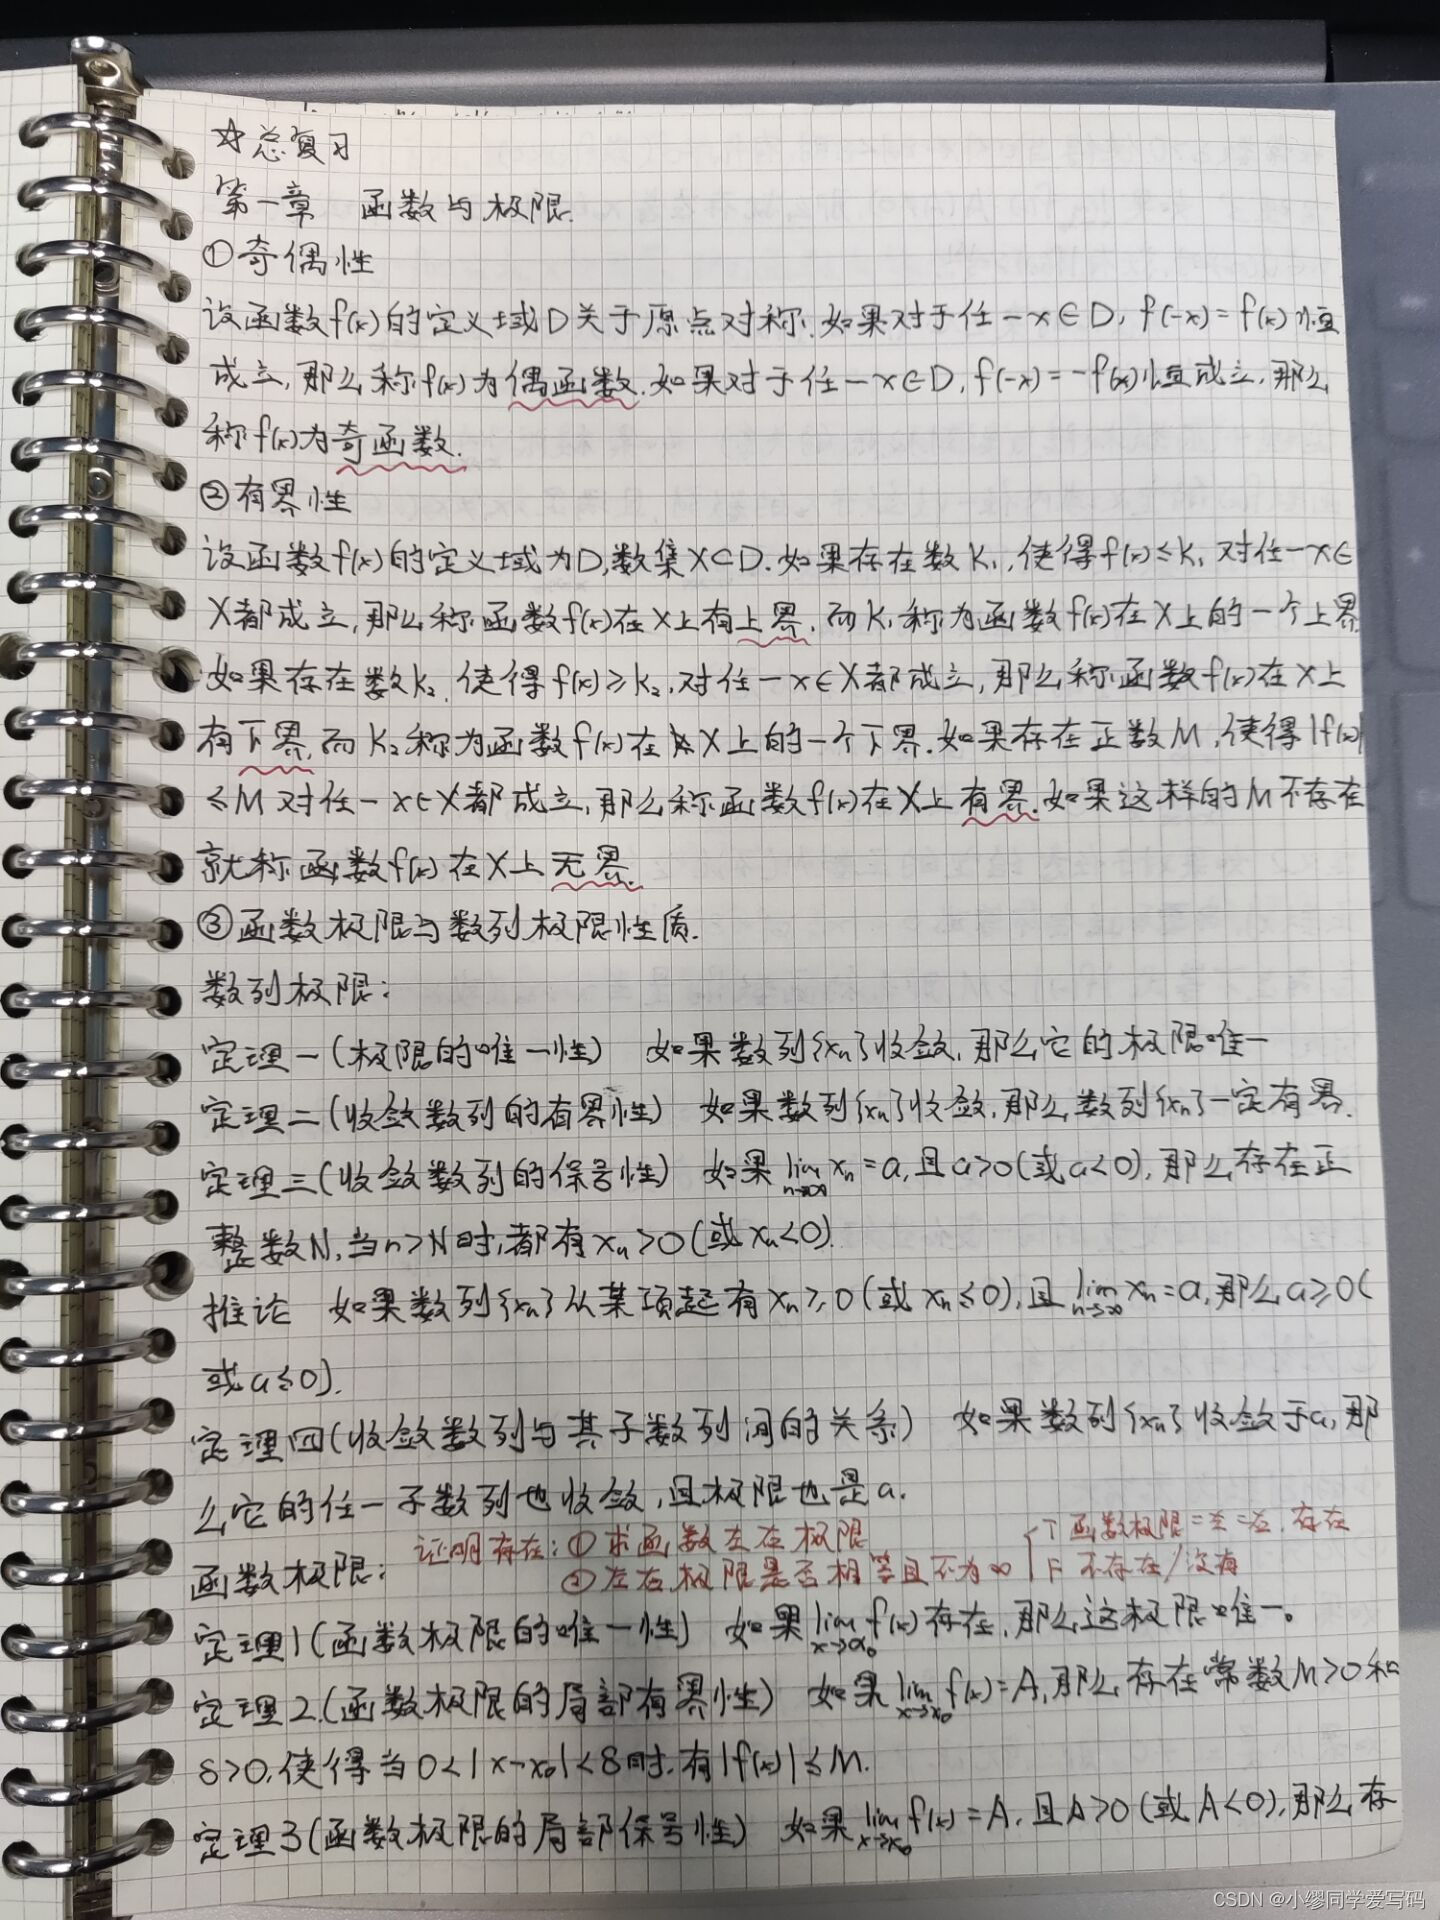 ☆总复习
第一章 函数与极限.
①奇偶性
设函数f(x)的定义域D关于原点对称.如果对于任一x∈D,f(-x)=f(x)恒
成立,那么称f(x)为偶函数.如果对于任一x∈D,f(-x)=-f(x)恒成立,那么
称f(x)为奇函数.
②有界性
设函数f(x)的定义域为D,数集X⊂D.如果存在数K₁,使得f(x)≤K₁对任一x∈
X都成立,那么称函数f(x)在X上有上界.而K₁称为函数f(x)在X上的一个上界
如果存在数K₂,使得f(x)≥K₂,对任一x∈X都成立,那么称函数f(x)在X上
有下界,而K₂称为函数f(x)在X上的一个下界.如果存在正数M,使得|f(x)|
≤M对任一x∈X都成立,那么称函数f(x)在X上有界.如果这样的M不存在
就称函数f(x)在X上无界.
③函数极限与数列极限性质.
数列极限:
定理一(极限的唯一性) 如果数列{xₙ}收敛,那么它的极限唯一
定理二(收敛数列的有界性) 如果数列{xₙ}收敛,那么数列{xₙ}一定有界.
定理三(收敛数列的保号性) 如果lim n→∞ xₙ=a,且a>0(或a<0),那么存在正
整数N,当n>N时,都有xₙ>0(或xₙ<0).
推论 如果数列{xₙ}从某项起有xₙ≥0(或xₙ≤0),且lim n→∞ xₙ=a,那么a≥0(
或a≤0).
定理四(收敛数列与其子数列间的关系) 如果数列{xₙ}收敛于a,那
么它的任一子数列也收敛,且极限也是a.
证明存在:①求函数左右极限
②左右极限是否相等且不为∞ { T 函数极限=右=左,存在
F 不存在/没有
函数极限:
定理1(函数极限的唯一性) 如果lim x→x₀ f(x)存在,那么这极限唯一。
定理2.(函数极限的局部有界性) 如果lim x→x₀ f(x)=A,那么存在常数M>0和
δ>0,使得当0<|x-x₀|<δ时,有|f(x)|≤M.
定理3(函数极限的局部保号性) 如果lim x→x₀ f(x)=A,且A>0(或A<0),那么存
CSDN @小缪同学爱写码